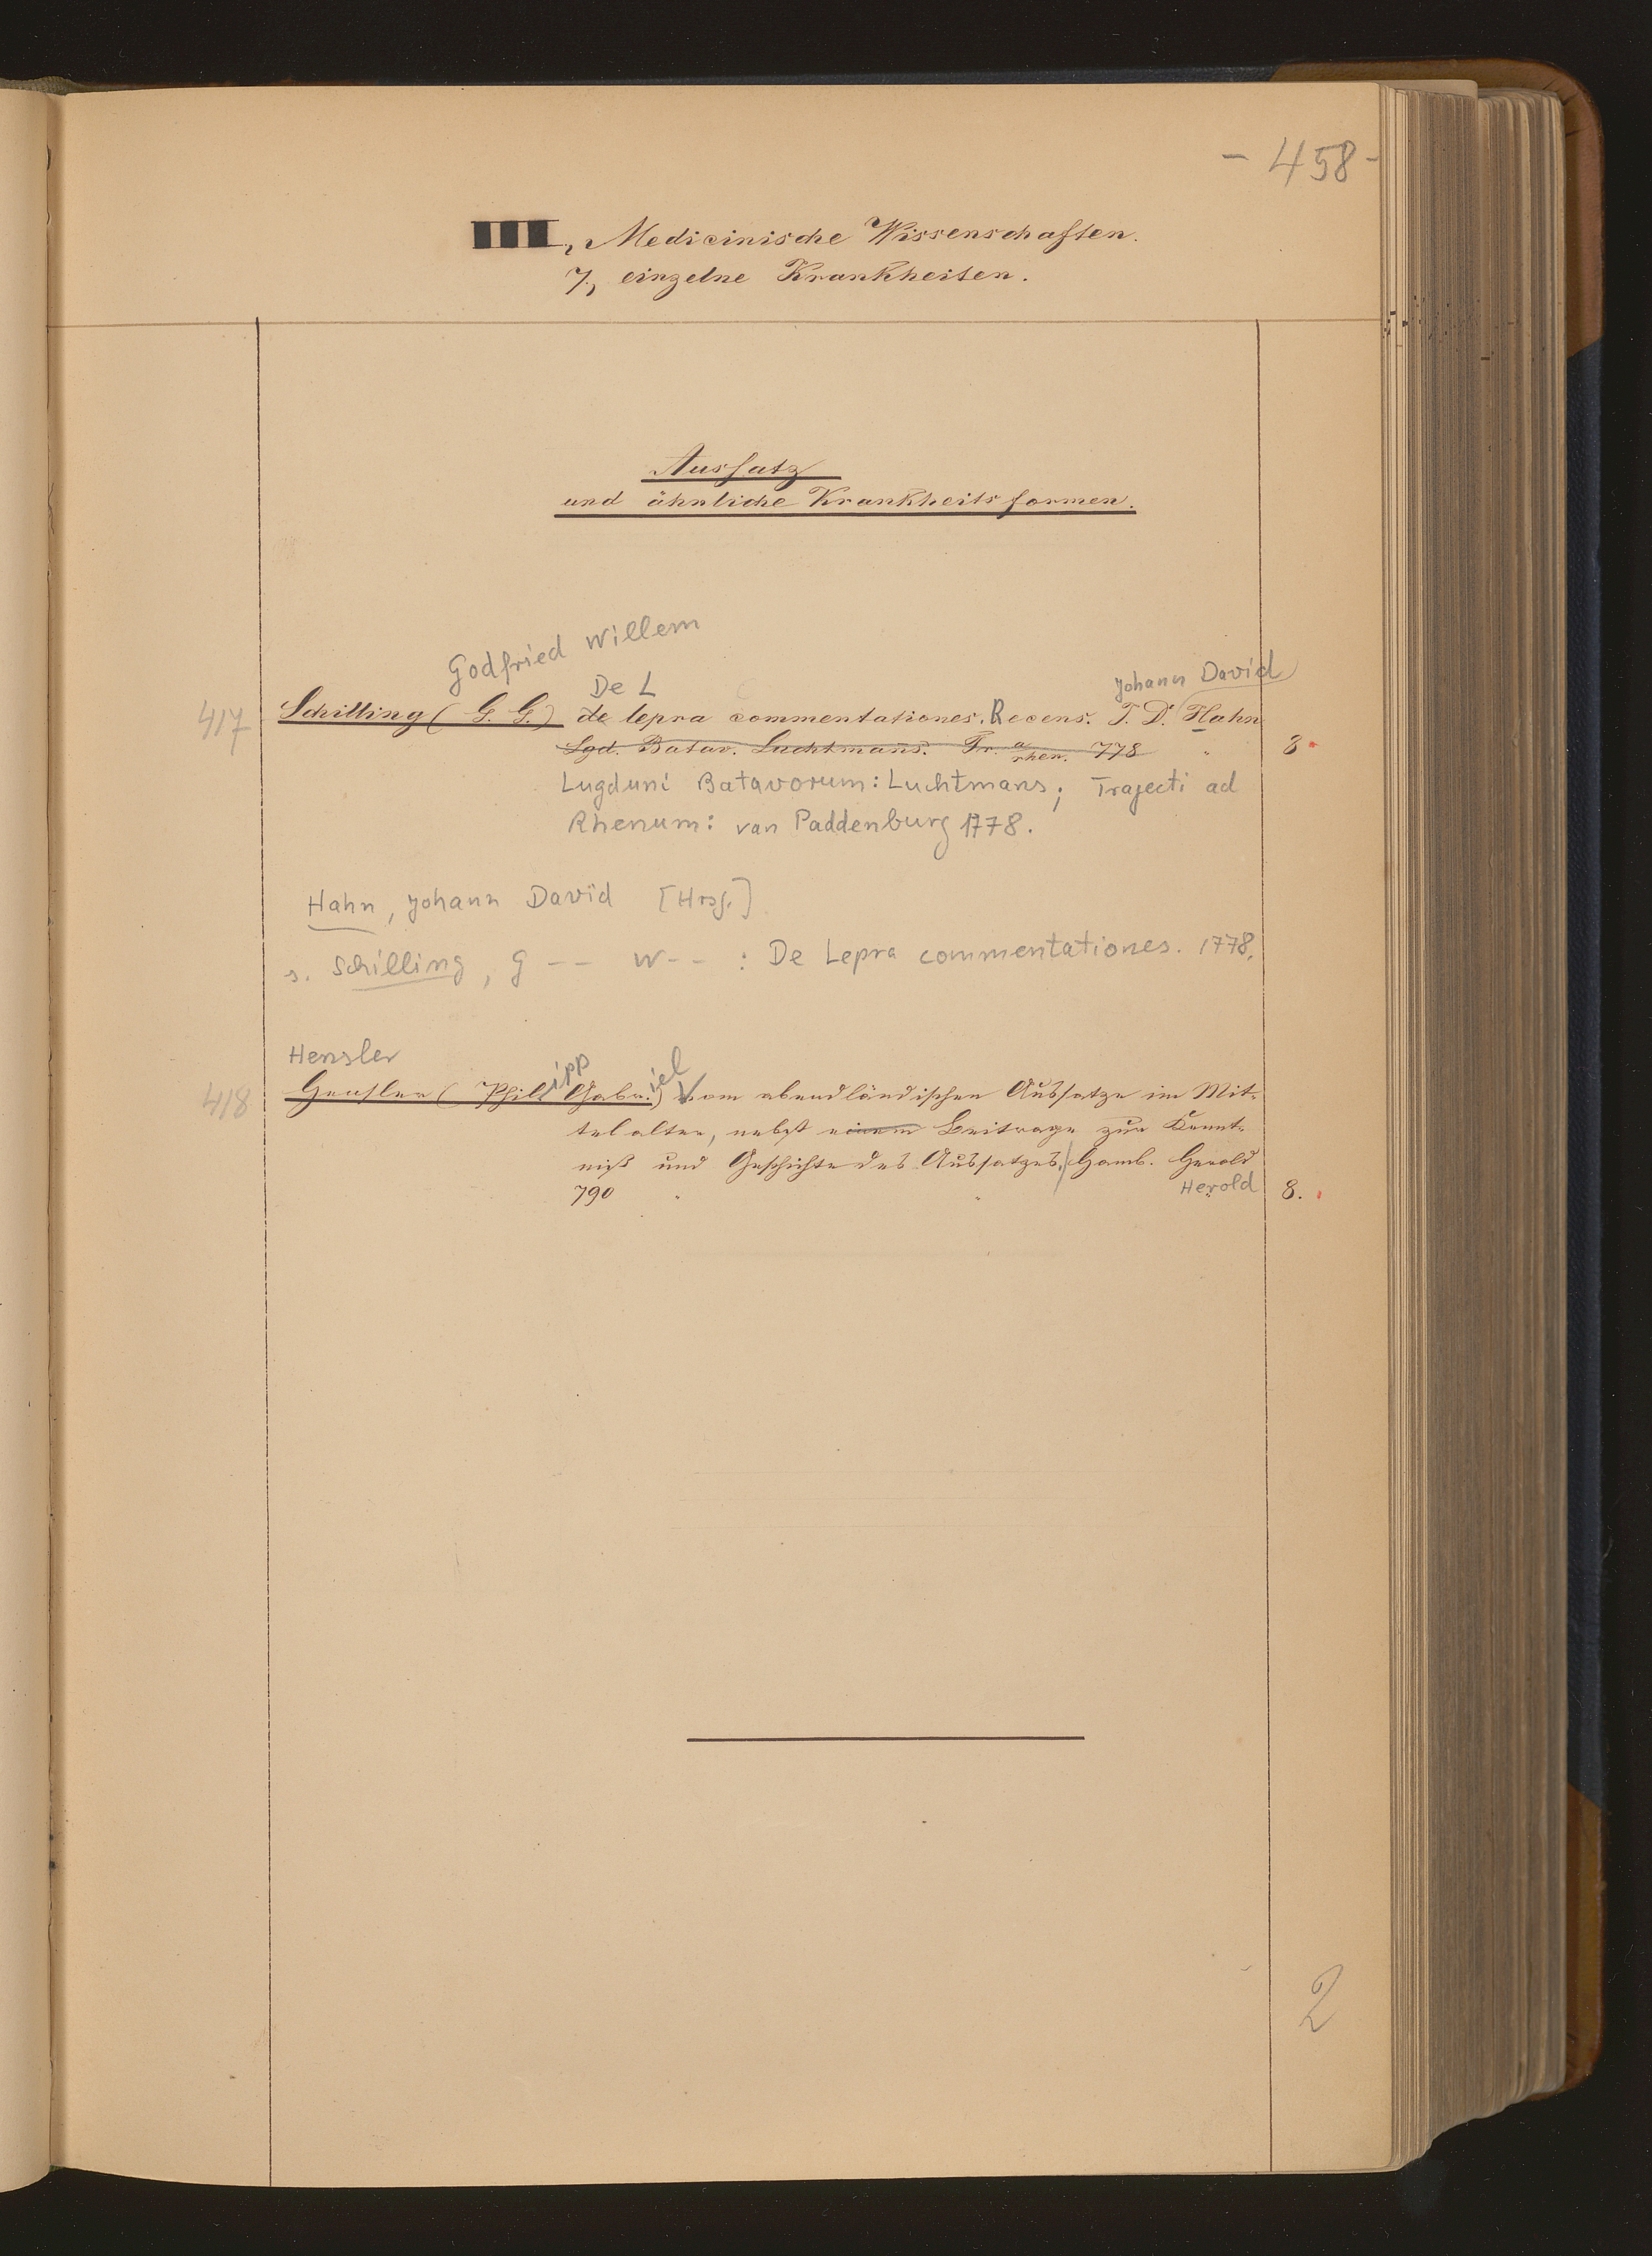 - 458 -
III, Medicinische Wissenschaften.
7, einzelne Krankheiten.
Aussatz
und ähnliche Krankheitsformen.
Godfried Willem
De L
Johann David
417 Schilling (G. G.) de lepra commentationes. Recens. J. D. Hahn
Lgd. Batav. Luchtmans. Tr. a. rhen. 778 " 8.
Lugduni Batavorum: Luchtmans; Trajecti ad
Rhenum: van Paddenburg 1778.
Hahn, Johann David [Hrsg.]
s. Schilling, G-- W--: De Lepra commentationes. 1778.
Hensler
ipp iel
418 Hensler (Phil. Gabr.) Vom abendländischen Aussatze im Mit-
telalter, nebst einem Beitrage zur Kennt-
niß und Geschichte des Aussatzes. / Hamb. Herold
790 " " Herold 8.
2